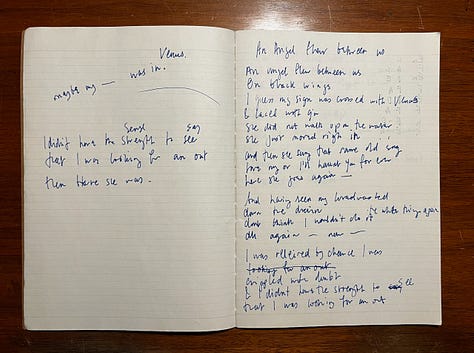 Venus.
maybe my — was in.
Sense say
I didn't have the strength to see
that I was looking for an out
then there she was.
An Angel flew between us
An angel flew between us
On black wings
I guess my sign was crossed with Venus
& laced with gin
She did not walk upon the water
she just moved right in
And then she sang that same old song
love me or I'll haunt you for ever
here she goes again —
And having seen my
down the drain
don't think I wouldn't do it
all again — now —
I was relieved by chance I was
looking for an out
crippled with doubt
& I didn't have the strength to see
that I was looking for an out